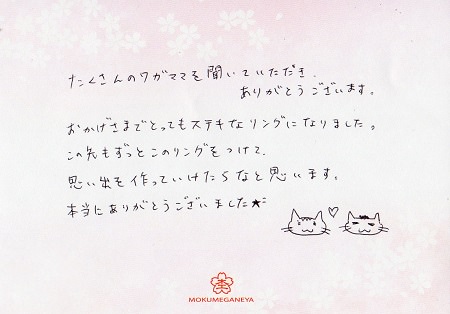 たくさんのワガママを聞いていただき、
ありがとうございます。
おかげさまでとってもステキなリングになりました。
この先もずっとこのリングをつけて、
思い出を作っていけたらなと思います。
本当にありがとうございました★
MOKUMEGANEYA